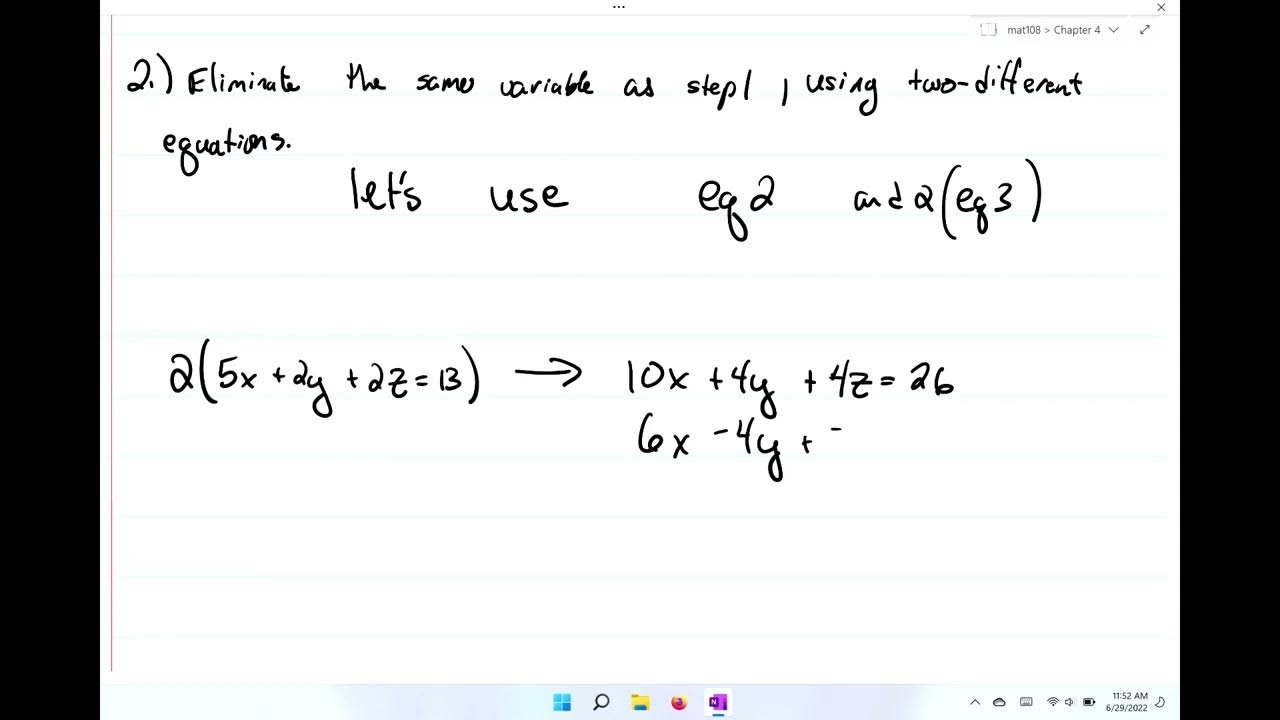 ...
mat108 > Chapter 4
2.) Eliminate the same variable as step 1, using two-different
equations.
let's use eq 2 and 2(eq 3)
2(5x + 2y + 2z = 13) → 10x + 4y + 4z = 26
6x - 4y +
11:52 AM
6/29/2022